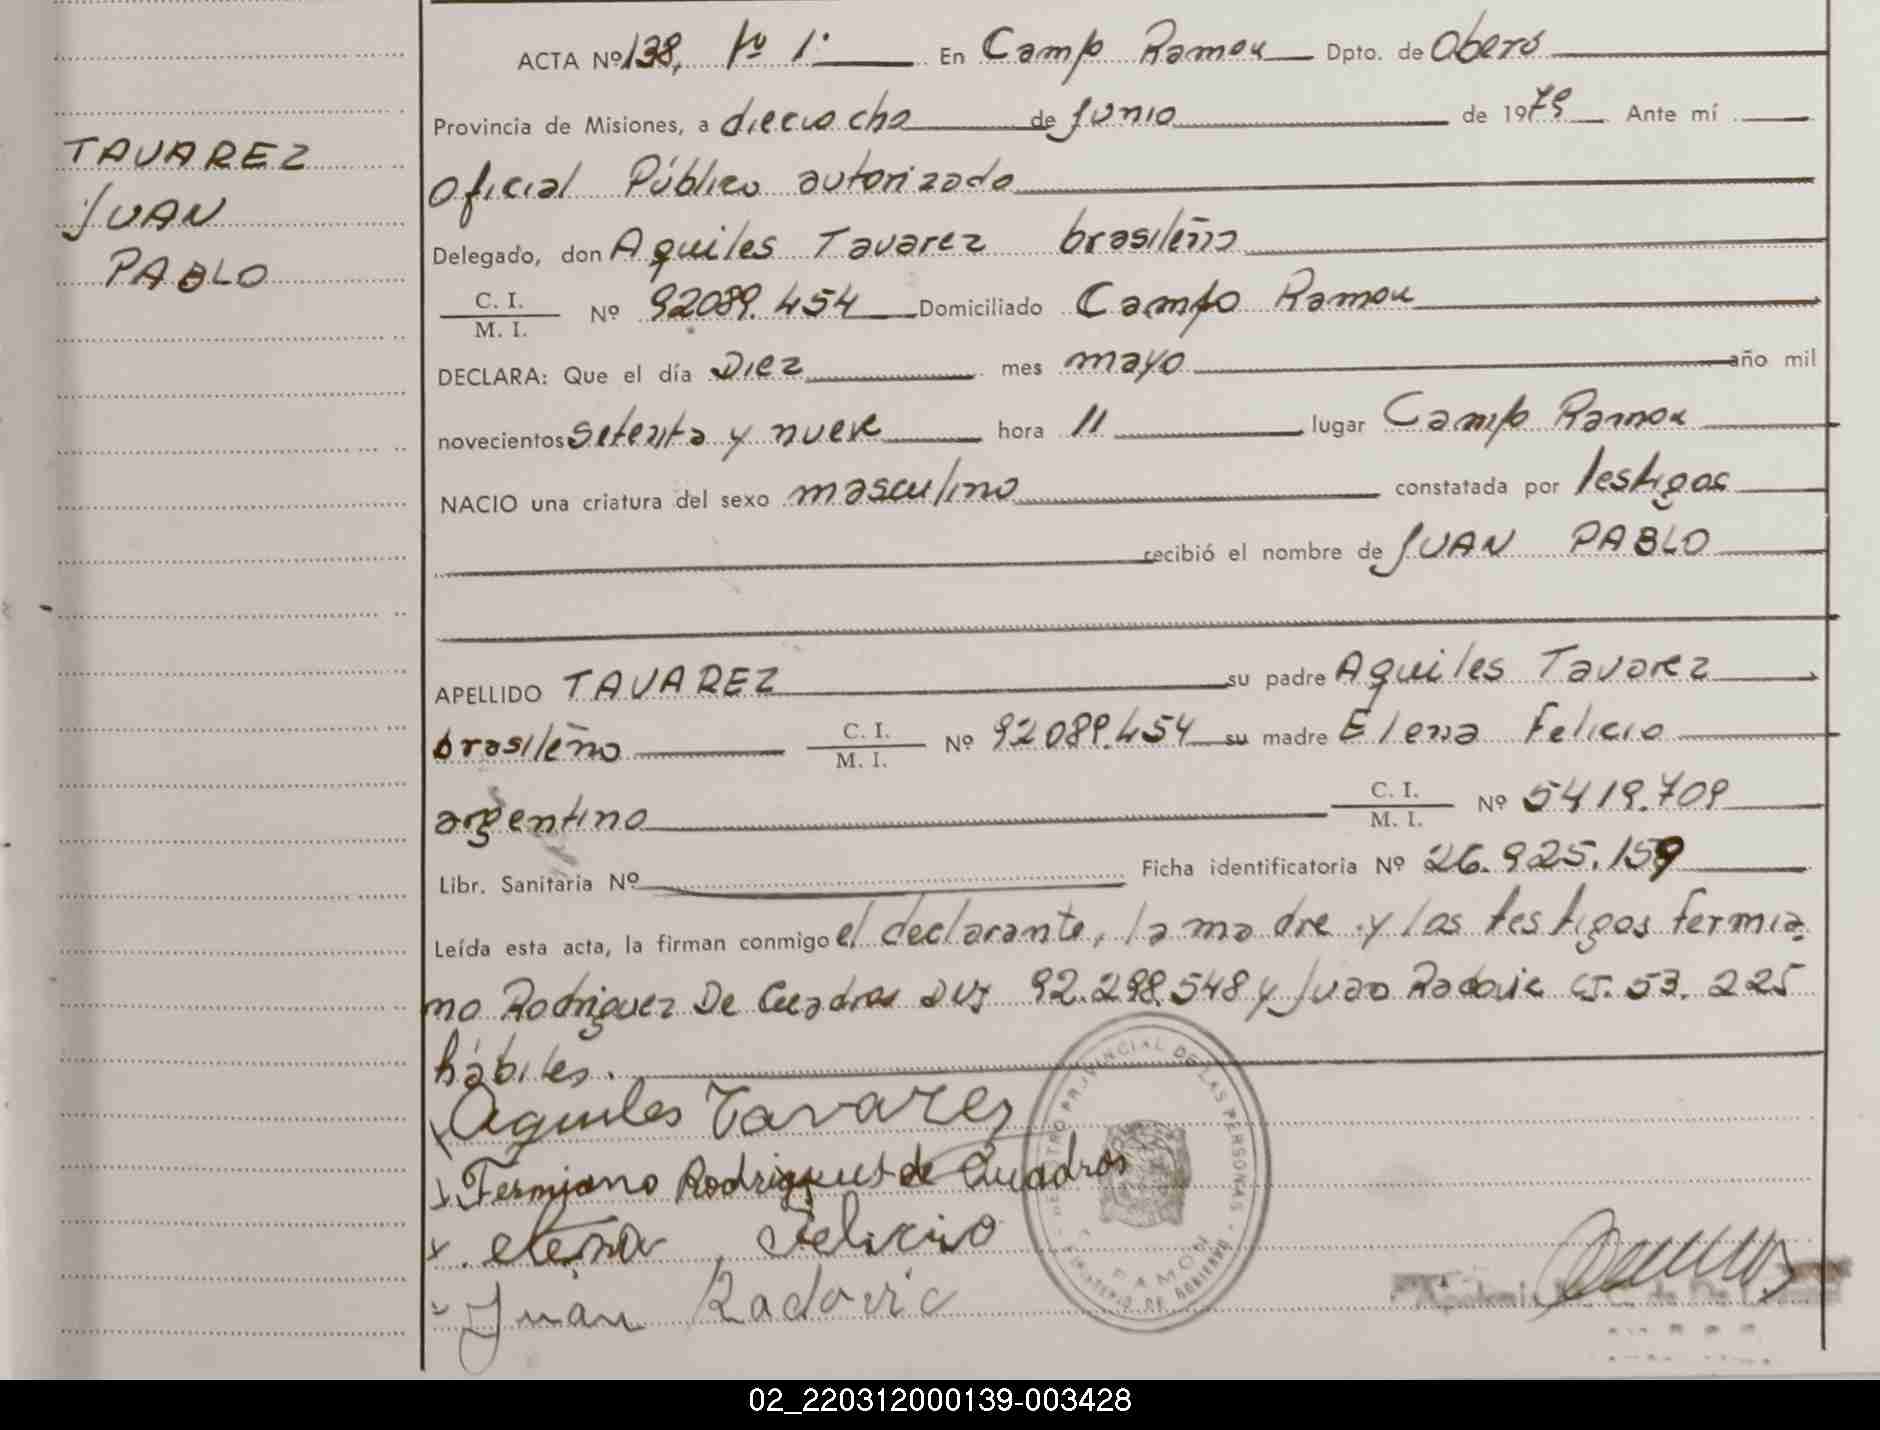 ACTA Nº 138, Tº 1º En Campo Ramon Dpto. de Oberá
Provincia de Misiones, a dieciocho de Junio de 1979 Ante mí
Oficial Público autorizado
Delegado, don Aquiles Tavarez brasileño
C. I.
M. I. Nº 92089.454 Domiciliado Campo Ramon
DECLARA: Que el día Diez mes mayo año mil
novecientos setenta y nueve hora 11 lugar Campo Ramon
NACIO una criatura del sexo masculino constatada por testigos
recibió el nombre de JUAN PABLO
APELLIDO TAVAREZ su padre Aquiles Tavarez
brasileño C. I.
M. I. Nº 92089.454 su madre Elena Felicio
argentino C. I.
M. I. Nº 5419.709
Libr. Sanitaria Nº Ficha identificatoria Nº 26.925.159
Leída esta acta, la firman conmigo el declarante, la madre y los testigos Fermia
no Rodriguez De Cuadros DNI 92.298.548 y Juan Radovic CI. 53.225
hábiles.
Aquiles Tavarez
Fermiano Rodrigues de Quadros
elena Felicio
Juan Radovic
TAVAREZ
JUAN
PABLO
REGISTRO PROVINCIAL DE LAS PERSONAS
RAMON
MINISTERIO DE GOBIERNO
02_220312000139-003428